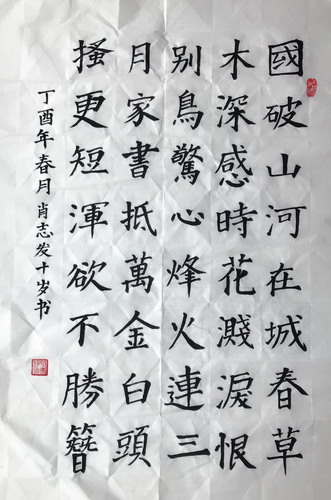 國破山河在城春草
木深感時花濺淚恨
別鳥驚心烽火連三
月家書抵萬金白頭
搔更短渾欲不勝簪
丁酉年春月肖志发十岁书